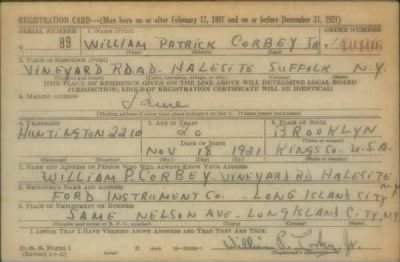 REGISTRATION CARD—(Men born on or after February 17, 1897 and on or before December 31, 1921)
SERIAL NUMBER 1. NAME (Print) ORDER NUMBER
89 WILLIAM PATRICK CORBEY JR.
(First) (Middle) (Last)
2. PLACE OF RESIDENCE (Print)
VINEYARD ROAD. HALESITE SUFFOLK N.Y.
(Number and street) (Town, township, village, or city) (County) (State)
[THE PLACE OF RESIDENCE GIVEN ON THE LINE ABOVE WILL DETERMINE LOCAL BOARD
JURISDICTION; LINE 2 OF REGISTRATION CERTIFICATE WILL BE IDENTICAL]
3. MAILING ADDRESS
Same
4. TELEPHONE 5. AGE IN YEARS 6. PLACE OF BIRTH
HUNTINGTON 2210 20 BROOKLYN
DATE OF BIRTH
NOV 18 1921 KINGS Co. U.S.A.
7. NAME AND ADDRESS OF PERSON WHO WILL ALWAYS KNOW YOUR ADDRESS
WILLIAM P. CORBEY - VINEYARD RD HALESITE N.Y.
8. EMPLOYER'S NAME AND ADDRESS
FORD INSTRUMENT Co. - LONG ISLAND CITY
9. PLACE OF EMPLOYMENT OR BUSINESS
SAME NELSON AVE. - LONG ISLAND CITY, N.Y.
I AFFIRM THAT I HAVE VERIFIED ABOVE ANSWERS AND THAT THEY ARE TRUE.
D. S. S. Form 1
William P. Corbey Jr.